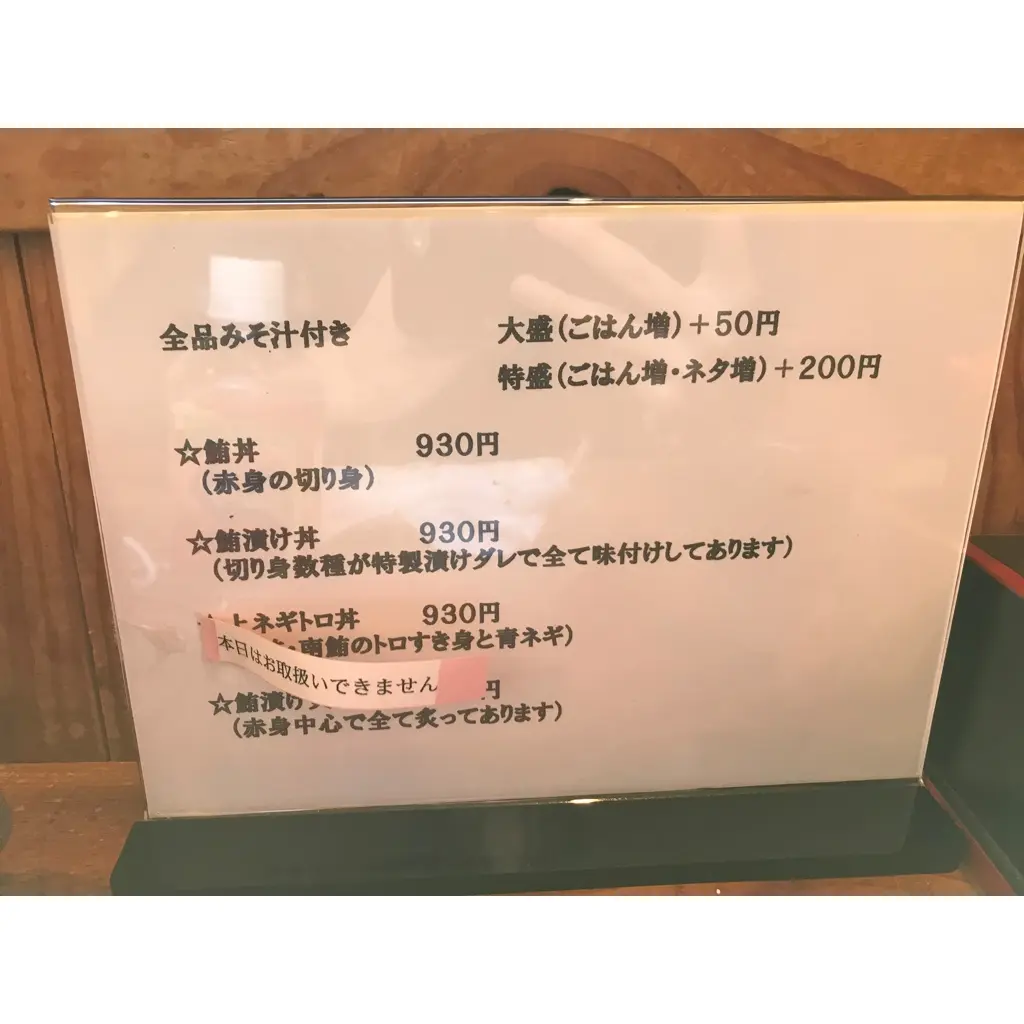 全品みそ汁付き
大盛(ごはん増)+50円
特盛(ごはん増・ネタ増)+200円
☆鮪丼 930円
(赤身の切り身)
☆鮪漬け丼 930円
(切り身数種が特製漬けダレで全て味付けしてあります)
ネギトロ丼 930円
南鮪のトロすき身と青ネギ)
本日はお取扱いできません
☆鮪漬け 円
(赤身中心で全て炙ってあります)